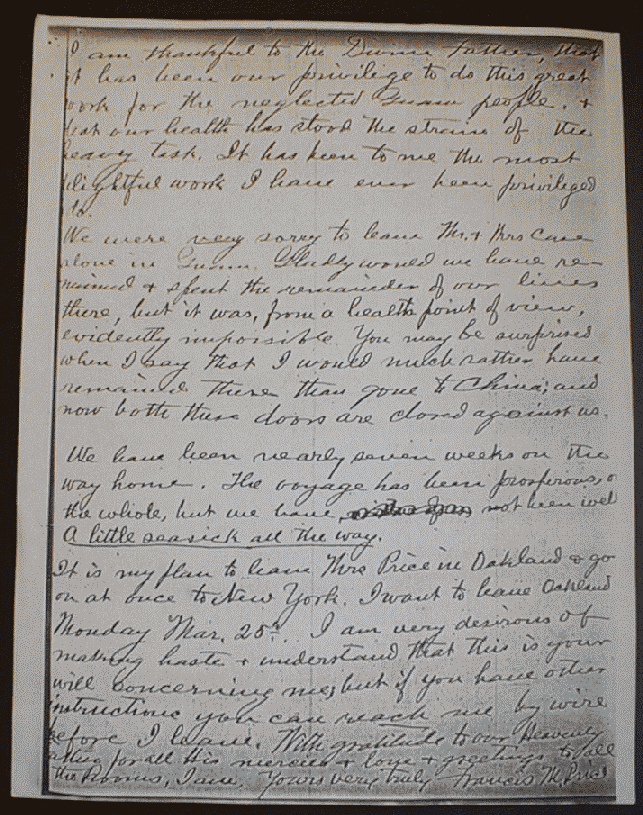 I am thankful to the Divine Father, that
it has been our privilege to do this great
work for the neglected Guam people, &
that our health has stood the strain of the
heavy task. It has been to me the most
delightful work I have ever been privileged
to.
We were very sorry to leave Mr. & Mrs Case
alone in Guam. Gladly would we have re-
mained & spent the remainder of our lives
there, but it was, from a health point of view,
evidently impossible. You may be surprised
when I say that I would much rather have
remained there than gone to China; and
now both these doors are closed against us.
We have been nearly seven weeks on the
way home. The voyage has been prosperous, on
the whole, but we have not been well
A little seasick all the way.
It is my plan to leave Mrs Price in Oakland & go
on at once to New York. I want to leave Oakland
Monday Mar. 25th. I am very desirous of
making haste & understand that this is your
will concerning me; but if you have other
instructions you can reach me by wire
before I leave. With gratitude to our Heavenly
Father for all His mercies & love & greetings to all
the Rooms, I am, Yours very truly Francis M. Price